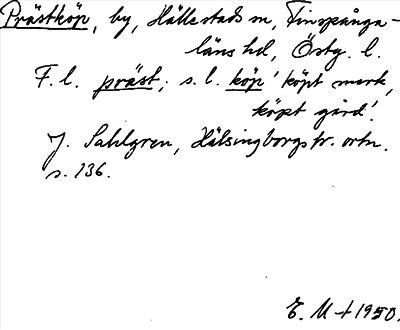 Prästköp, by, Hällestads sn, Finspånga-
läns hd, Östg. l.
F. l. präst; s. l. köp 'köpt mark,
köpt gård'.
J. Sahlgren, Hälsingborgstr. ortn.
s. 136.
1950.